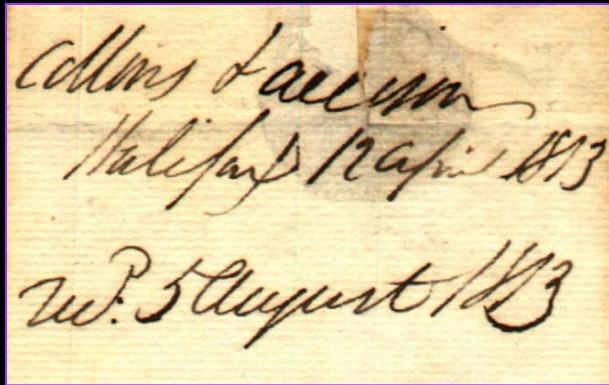 Collins & allison
Halifax 12 April 1813
recd. 5 August 1813